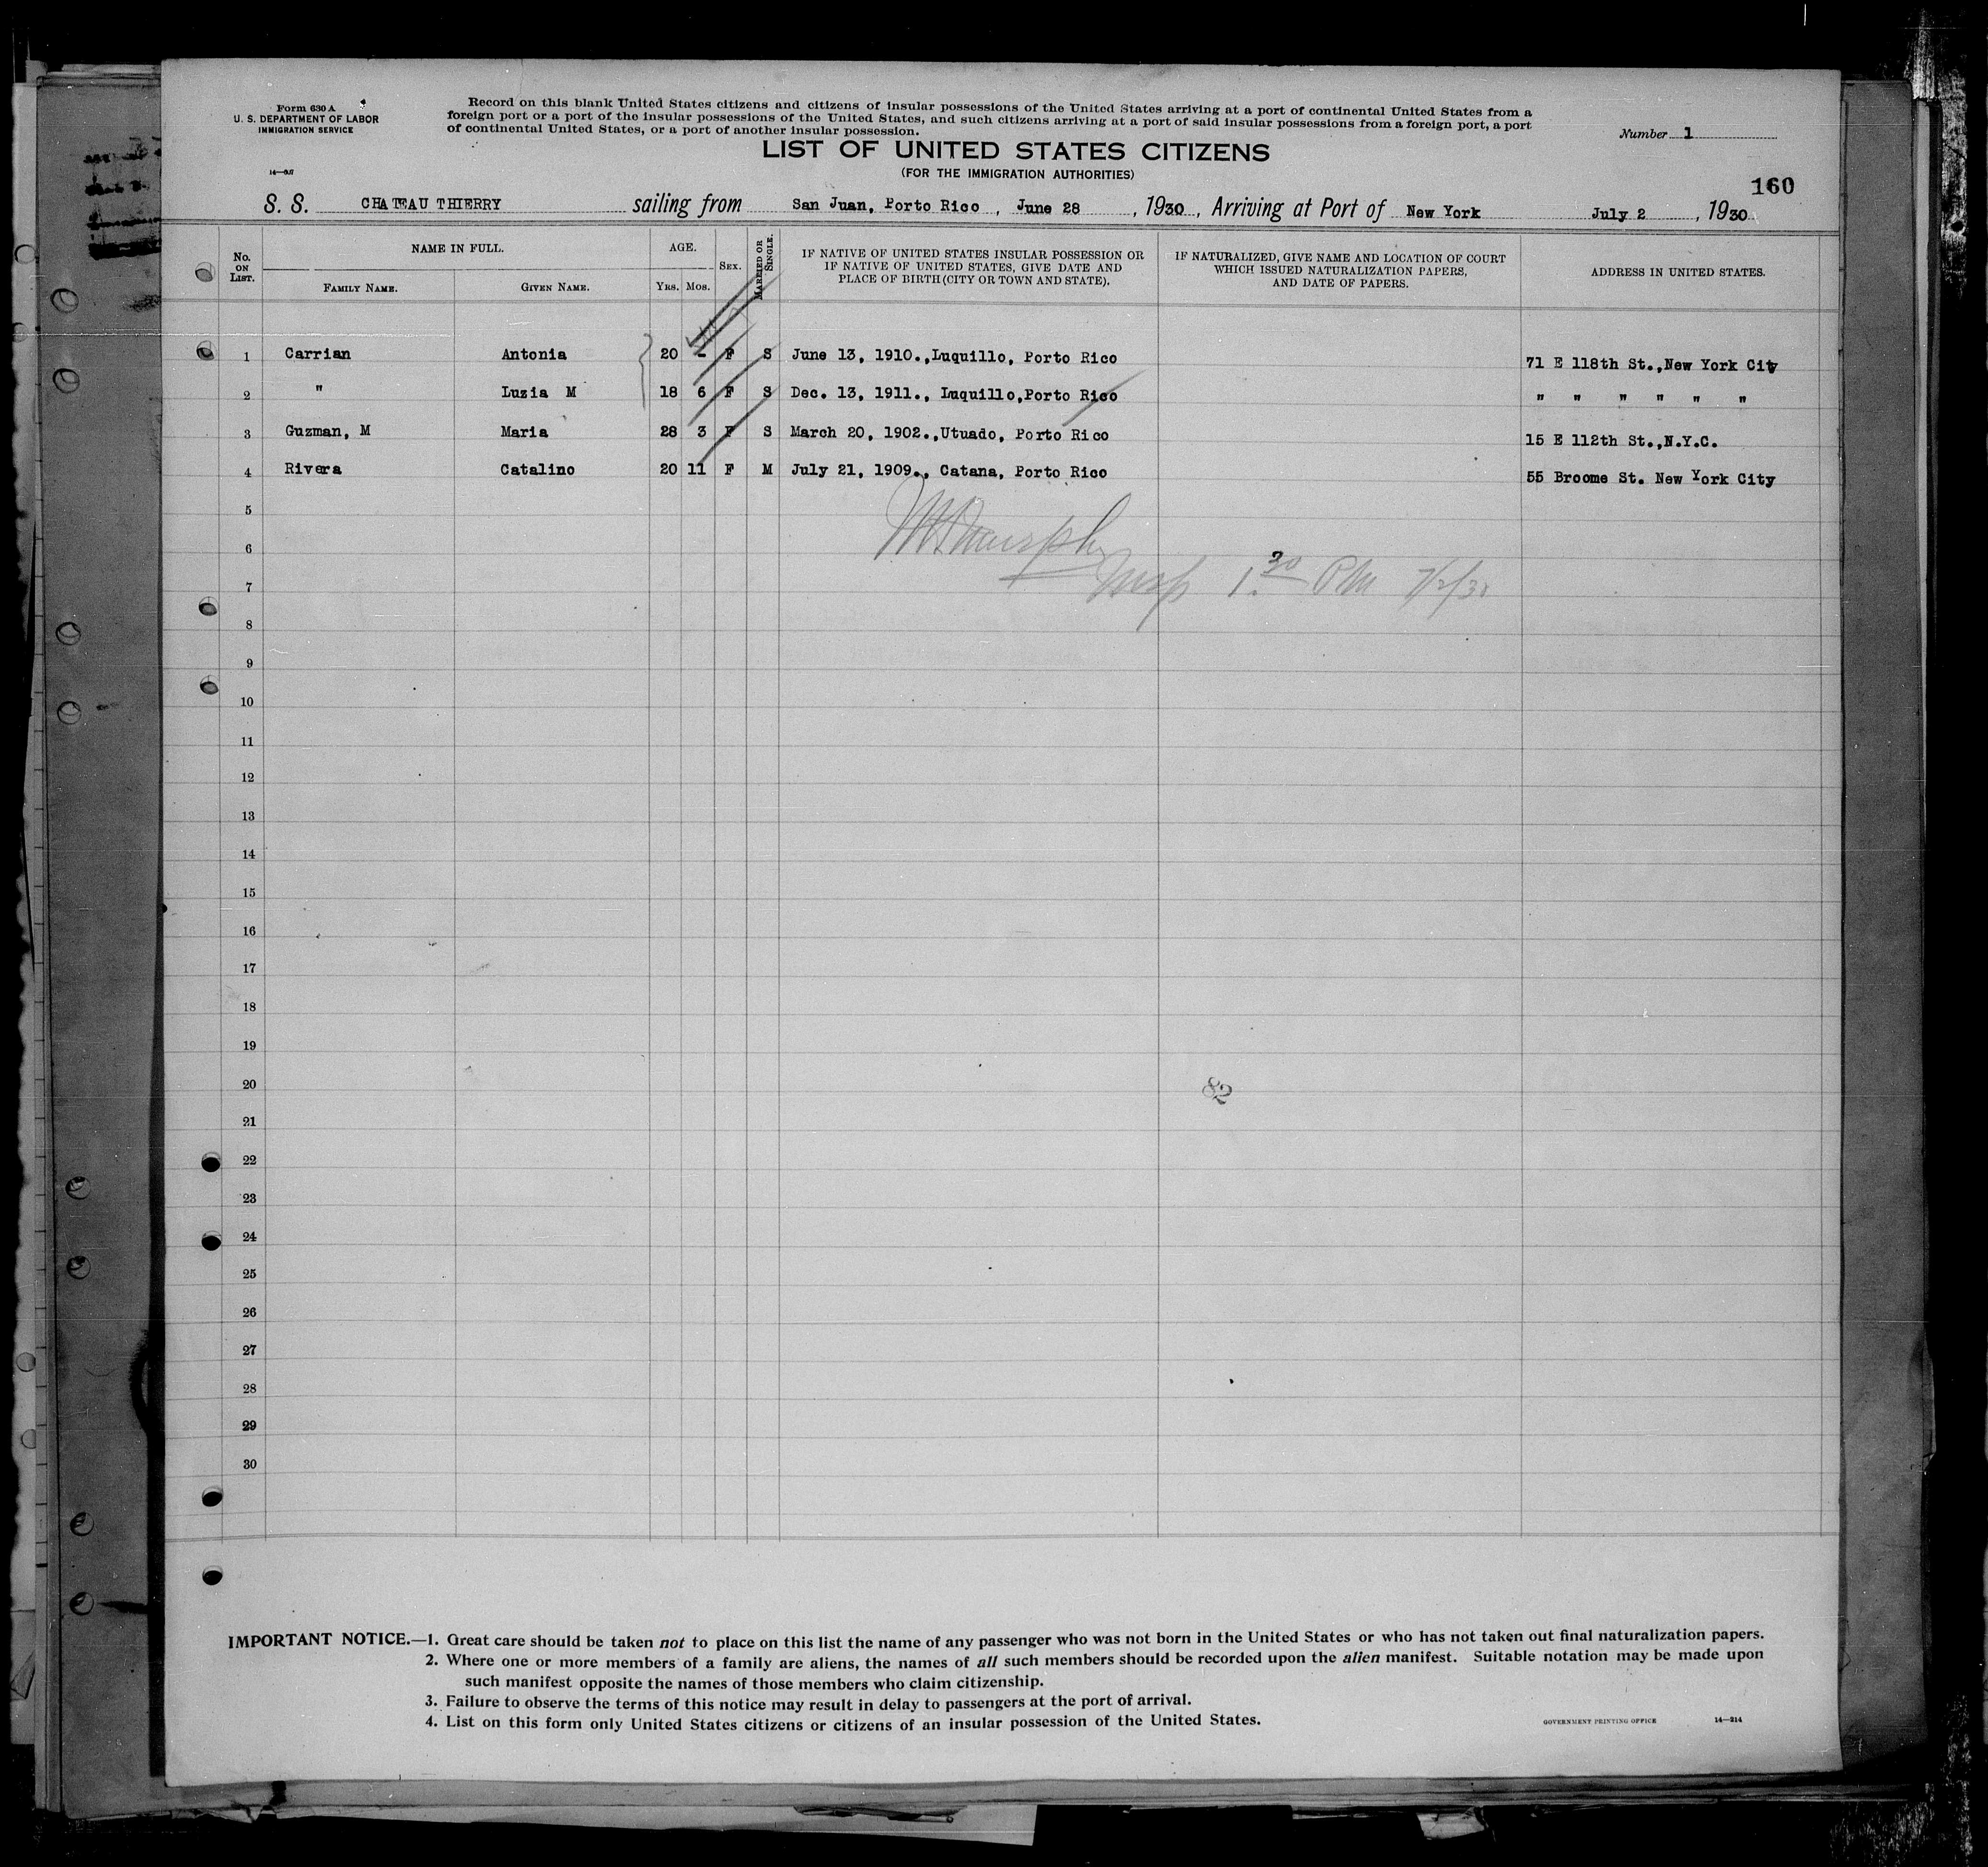 Form 630 A
U. S. DEPARTMENT OF LABOR
IMMIGRATION SERVICE
Record on this blank United States citizens and citizens of insular possessions of the United States arriving at a port of continental United States from a
foreign port or a port of the insular possessions of the United States, and such citizens arriving at a port of said insular possessions from a foreign port, a port
of continental United States, or a port of another insular possession.
Number 1
LIST OF UNITED STATES CITIZENS
(FOR THE IMMIGRATION AUTHORITIES)
160
S. S. CHATEAU THIERRY sailing from San Juan, Porto Rico, June 28, 1930, Arriving at Port of New York July 2, 1930
No. ON LIST. NAME IN FULL. AGE. SEX. MARRIED OR SINGLE. IF NATIVE OF UNITED STATES INSULAR POSSESSION OR IF NATIVE OF UNITED STATES, GIVE DATE AND PLACE OF BIRTH (CITY OR TOWN AND STATE). IF NATURALIZED, GIVE NAME AND LOCATION OF COURT WHICH ISSUED NATURALIZATION PAPERS, AND DATE OF PAPERS. ADDRESS IN UNITED STATES.
FAMILY NAME. GIVEN NAME. YRS. MOS.
1 Carrian Antonia 20 - F S June 13, 1910.,Luquillo, Porto Rico 71 E 118th St.,New York City
2 " Luzia M 18 6 F S Dec. 13, 1911., Luquillo,Porto Rico " " " " " "
3 Guzman, M Maria 28 3 F S March 20, 1902.,Utuado, Porto Rico 15 E 112th St.,N.Y.C.
4 Rivera Catalino 20 11 F M July 21, 1909., Catana, Porto Rico 55 Broome St. New York City
5
6
7
Insp 1.30 PM 7/2/30
8
9
10
11
12
13
14
15
16
17
18
19
20
82
21
22
23
24
25
26
27
28
29
30
IMPORTANT NOTICE.—1. Great care should be taken not to place on this list the name of any passenger who was not born in the United States or who has not taken out final naturalization papers.
2. Where one or more members of a family are aliens, the names of all such members should be recorded upon the alien manifest. Suitable notation may be made upon
such manifest opposite the names of those members who claim citizenship.
3. Failure to observe the terms of this notice may result in delay to passengers at the port of arrival.
4. List on this form only United States citizens or citizens of an insular possession of the United States.
GOVERNMENT PRINTING OFFICE 14—214